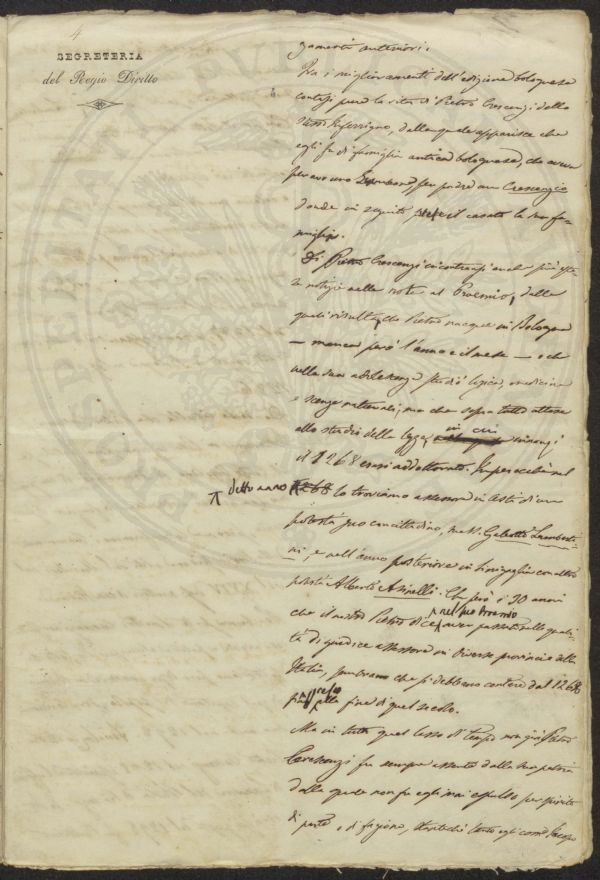 4
SEGRETERIA
del Regio Diritto
zamenti anteriori.
Fra i miglioramenti dell'edizione bolognese
contasi pure la vita di Pietro Crescenzi dello
stesso Inferrigno, dalla quale apparisce che
egli fu di famiglia antica bolognese, che aveva
per avo uno per padre un Crescenzio
donde in seguito prese il casato la sua fa-
miglia.
Di Pietro Crescenzi incontransi anche più
notizie nelle note al Proemio, dalle
quali risulta, che Pietro nacque in Bologna
— manca però l'anno e il mese — e che
nella sua adolescenza studiò logica, medicina
e scienze naturali; ma che sopra tutto attese
allo studio della legge, in cui innanzi
il 1268 erasi addottorato. Imperocchè nel
detto anno 1268 lo troviamo assessore in Asti di un
potestà suo concittadino, M. Galeotto Lamberti-
ni, e nell'anno posteriore in Sinigaglia con altro
potestà Alberto Asinelli. Che però i 30 anni
che il nostro Pietro dice nel suo Proemio aver passati nella quali-
tà di giudice assessore in diverse provincie della
Italia, sembrano che si debbano contare dal 1268
fin presso alla fine di quel secolo.
Ma in tutto quel lasso di tempo non già Pietro
Crescenzi fu sempre assente dalla sua patria
dalla quale non fu egli mai espulso per spirito
di parte, e di fazione, tanto egli come Jacopo